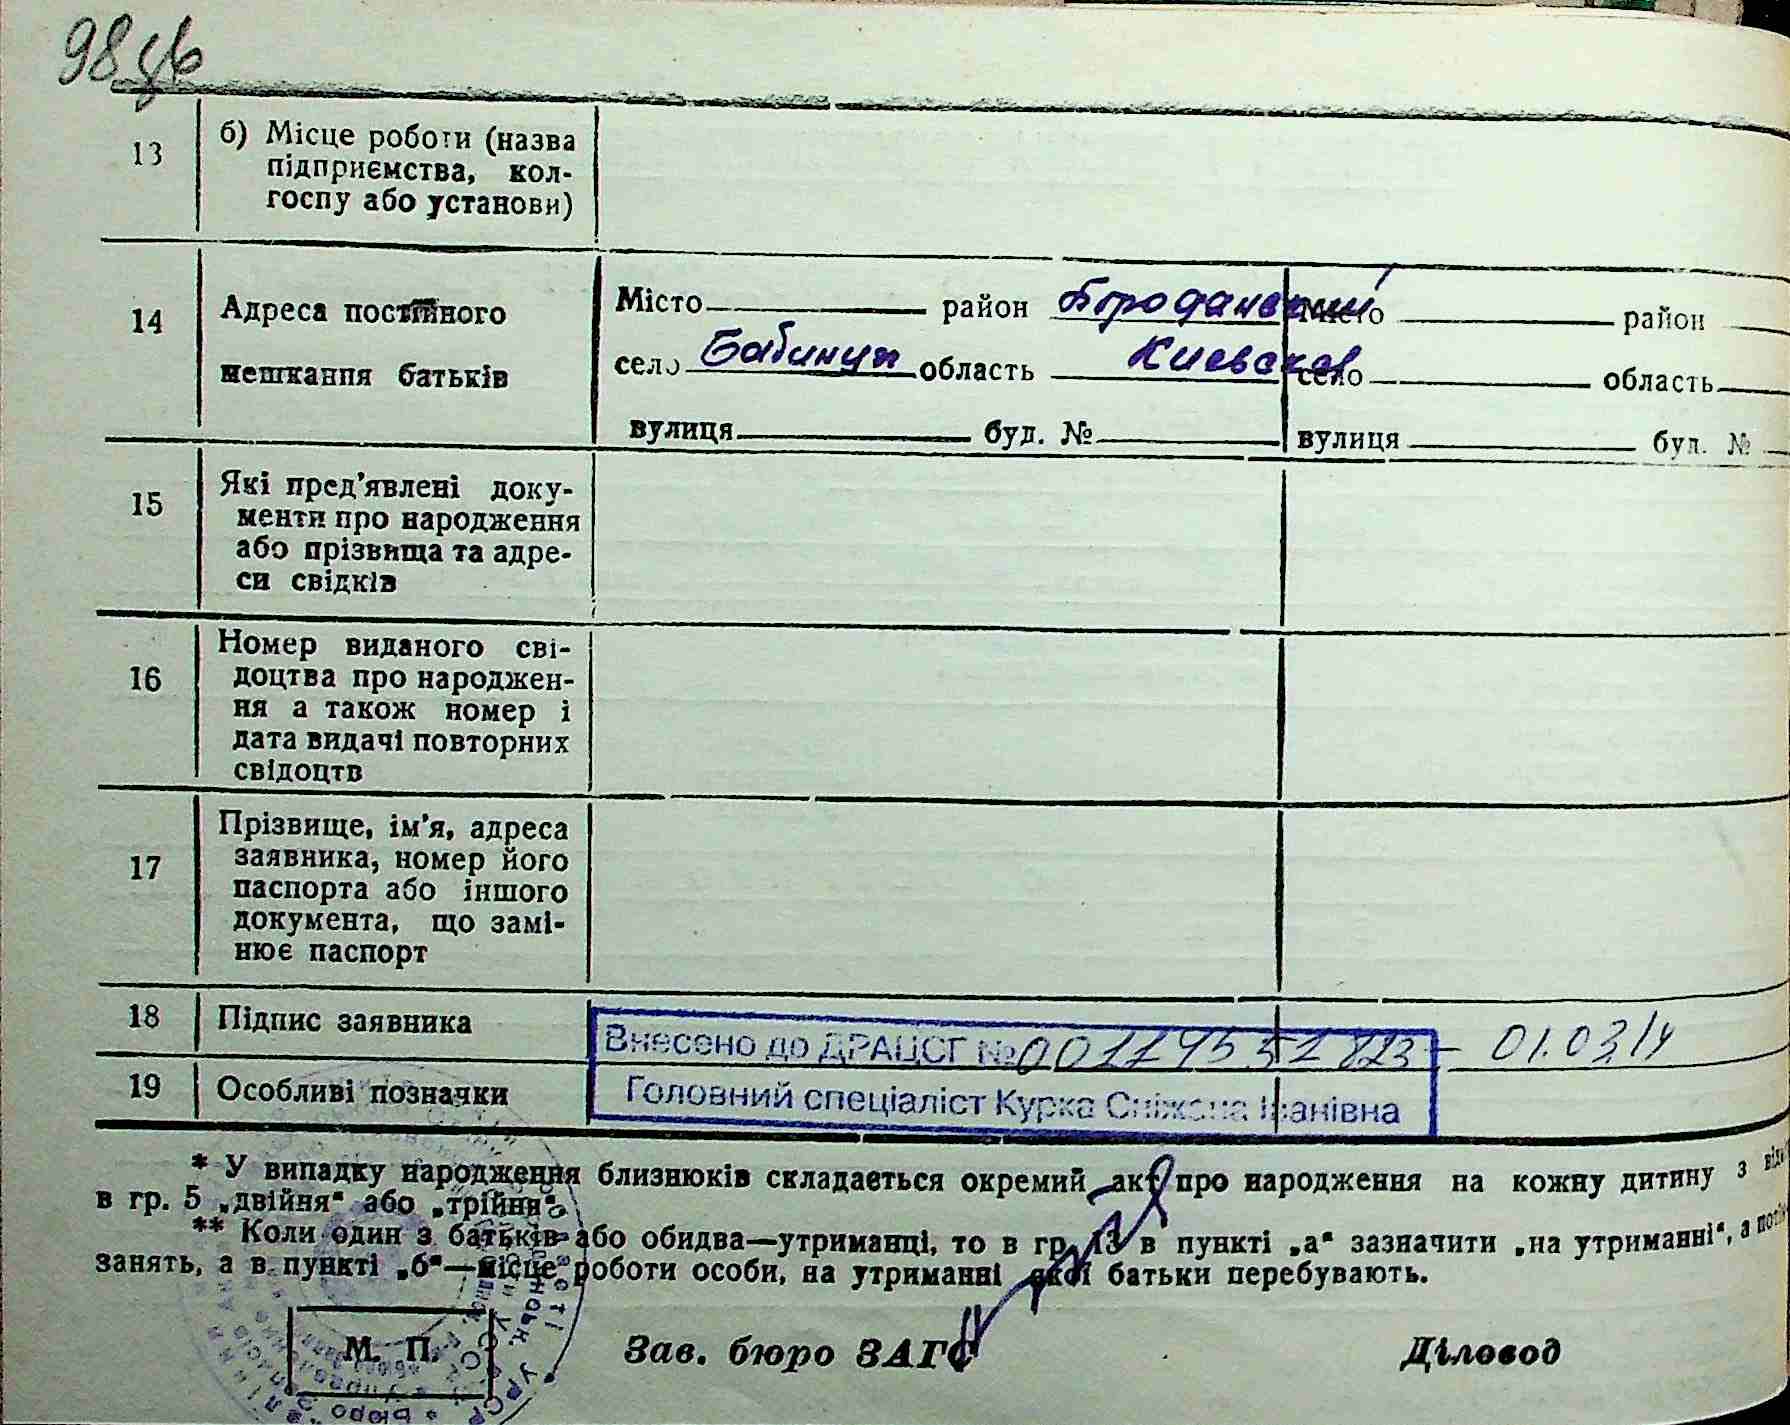 98 зв
13
б) Місце роботи (назва
підприємства, кол-
госпу або установи)
14
Адреса постійного
мешкання батьків
Місто район Бородянский
село Бабинцы область Киевская
вулиця буд. №
Місто район
село область
вулиця буд. №
15
Які пред'явлені доку-
менти про народження
або прізвища та адре-
си свідків
16
Номер виданого сві-
доцтва про народжен-
ня а також номер і
дата видачі повторних
свідоцтв
17
Прізвище, ім'я, адреса
заявника, номер його
паспорта або іншого
документа, що замі-
нює паспорт
18 Підпис заявника
Внесено до ДРАЦСГ № 00119551823 - 01.03.14
19 Особливі позначки
Головний спеціаліст Курка Сніжана Іванівна
* У випадку народження близнюків складається окремий акт про народження на кожну дитину з
в гр. 5 „двійня“ або „трійня“.
** Коли один з батьків або обидва—утриманці, то в гр. 13 в пункті „а“ зазначити „на утриманні“, а
занять, а в пункті „б“—місце роботи особи, на утриманні якої батьки перебувають.
М. П.
Зав. бюро ЗАГС
Діловод